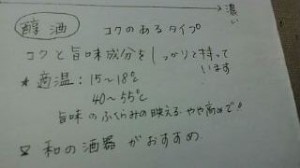 濃い
醇酒 コクのあるタイプ
コクと旨味成分をしっかりと持って
います
★適温:15~18℃
40~55℃
旨味のふくらみの映える、やや高めで!
和の酒器がおすすめ